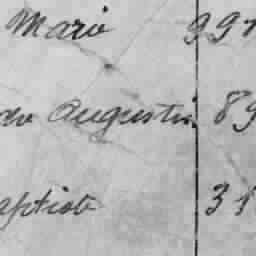 Marie 997
de Augustin 89
aptiste 31